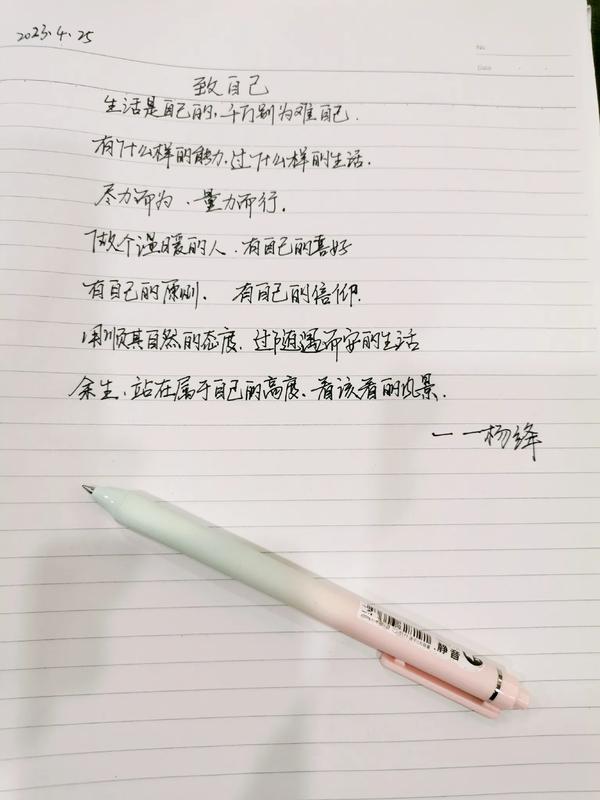 2023.4.25
No.
Date
致自己
生活是自己的，千万别为难自己.
有什么样的能力，过什么样的生活.
尽力而为、量力而行.
做个温暖的人，有自己的喜好
有自己的原则， 有自己的信仰.
用顺其自然的态度，过随遇而安的生活
余生，站在属于自己的高度、看该看的风景.
——杨绛
静音